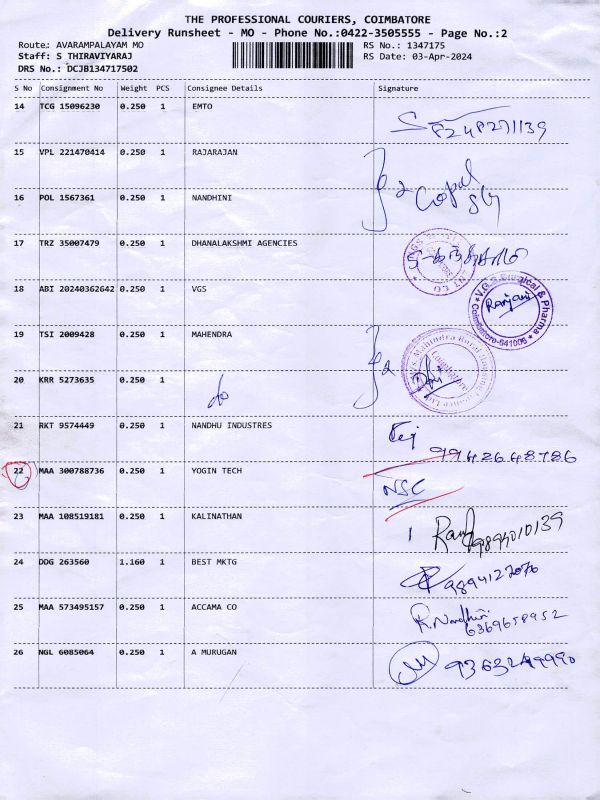 THE PROFESSIONAL COURIERS, COIMBATORE
Delivery Runsheet - MO - Phone No.:0422-3505555 - Page No.:2
Route: AVARAMPALAYAM MO RS No.: 1347175
Staff: S THIRAVIYARAJ RS Date: 03-Apr-2024
DRS No.: DCJB134717502
S No Consignment No Weight PCS Consignee Details Signature
14 TCG 15096230 0.250 1 EMTO
15 VPL 221470414 0.250 1 RAJARAJAN
16 POL 1567361 0.250 1 NANDHINI
Gopal
17 TRZ 35007479 0.250 1 DHANALAKSHMI AGENCIES
18 ABI 20240362642 0.250 1 VGS
V.G.S. Surgical & Pharma
Ranjani
Coimbatore-641006
19 TSI 2009428 0.250 1 MAHENDRA
Coimbatore
20 KRR 5273635 0.250 1
do
21 RKT 9574449 0.250 1 NANDHU INDUSTRES
9942648786
22 MAA 300788736 0.250 1 YOGIN TECH
NSC
23 MAA 108519181 0.250 1 KALINATHAN
24 DDG 263560 1.160 1 BEST MKTG
9894127076
25 MAA 573495157 0.250 1 ACCAMA CO
R. Nandhini
6369658952
26 NGL 6085064 0.250 1 A MURUGAN